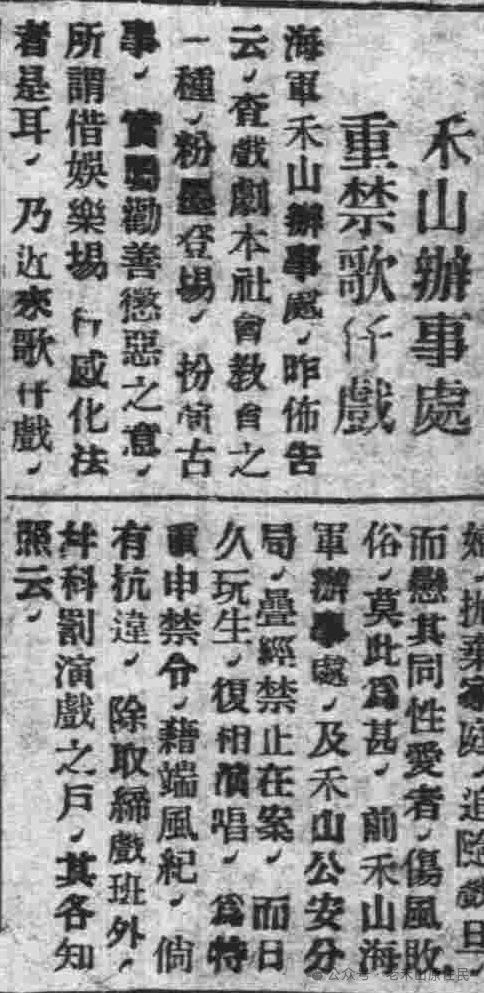 禾山辦事處
重禁歌仔戲
海軍禾山辦事處，昨佈告
云，查戲劇本社會教育之
一種，粉墨登場，扮演古
事，實寓勸善懲惡之意，
所謂借娛樂場 行感化法
者是耳，乃近來歌仔戲，
拋棄家庭，追隨戲旦，
而戀其同性愛者，傷風敗
俗，莫此爲甚，前禾山海
軍辦事處，及禾山公安分
局，疊經禁止在案，而日
久玩生，復相演唱，爲特
重申禁令，藉端風紀，倘
有抗違，除取締戲班外，
并科罰演戲之戶，其各知
照云，
公众号·老禾山原住民